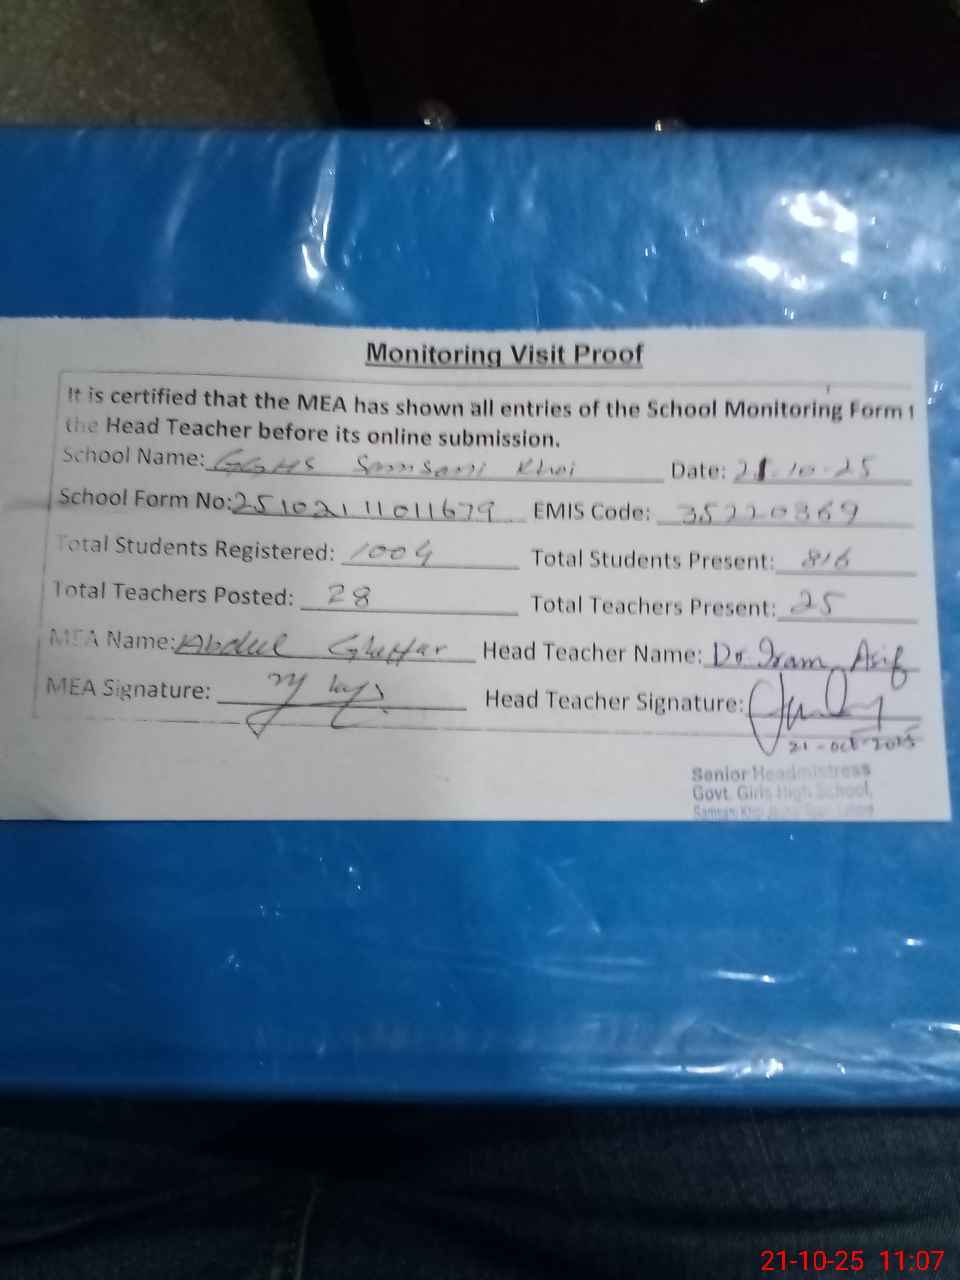 Monitoring Visit Proof
It is certified that the MEA has shown all entries of the School Monitoring Form t
the Head Teacher before its online submission.
School Name: GGHS Samsani Khoi Date: 21.10.25
School Form No: 25102111011679 EMIS Code: 35220369
Total Students Registered: 1004 Total Students Present: 816
Total Teachers Posted: 28 Total Teachers Present: 25
MEA Name: Abdul Ghaffar Head Teacher Name: Dr. Iram Asif
MEA Signature: Head Teacher Signature:
21-Oct-2025
Senior Headmistress
Govt. Girls High School,
Samsani Khoi
21-10-25 11:07